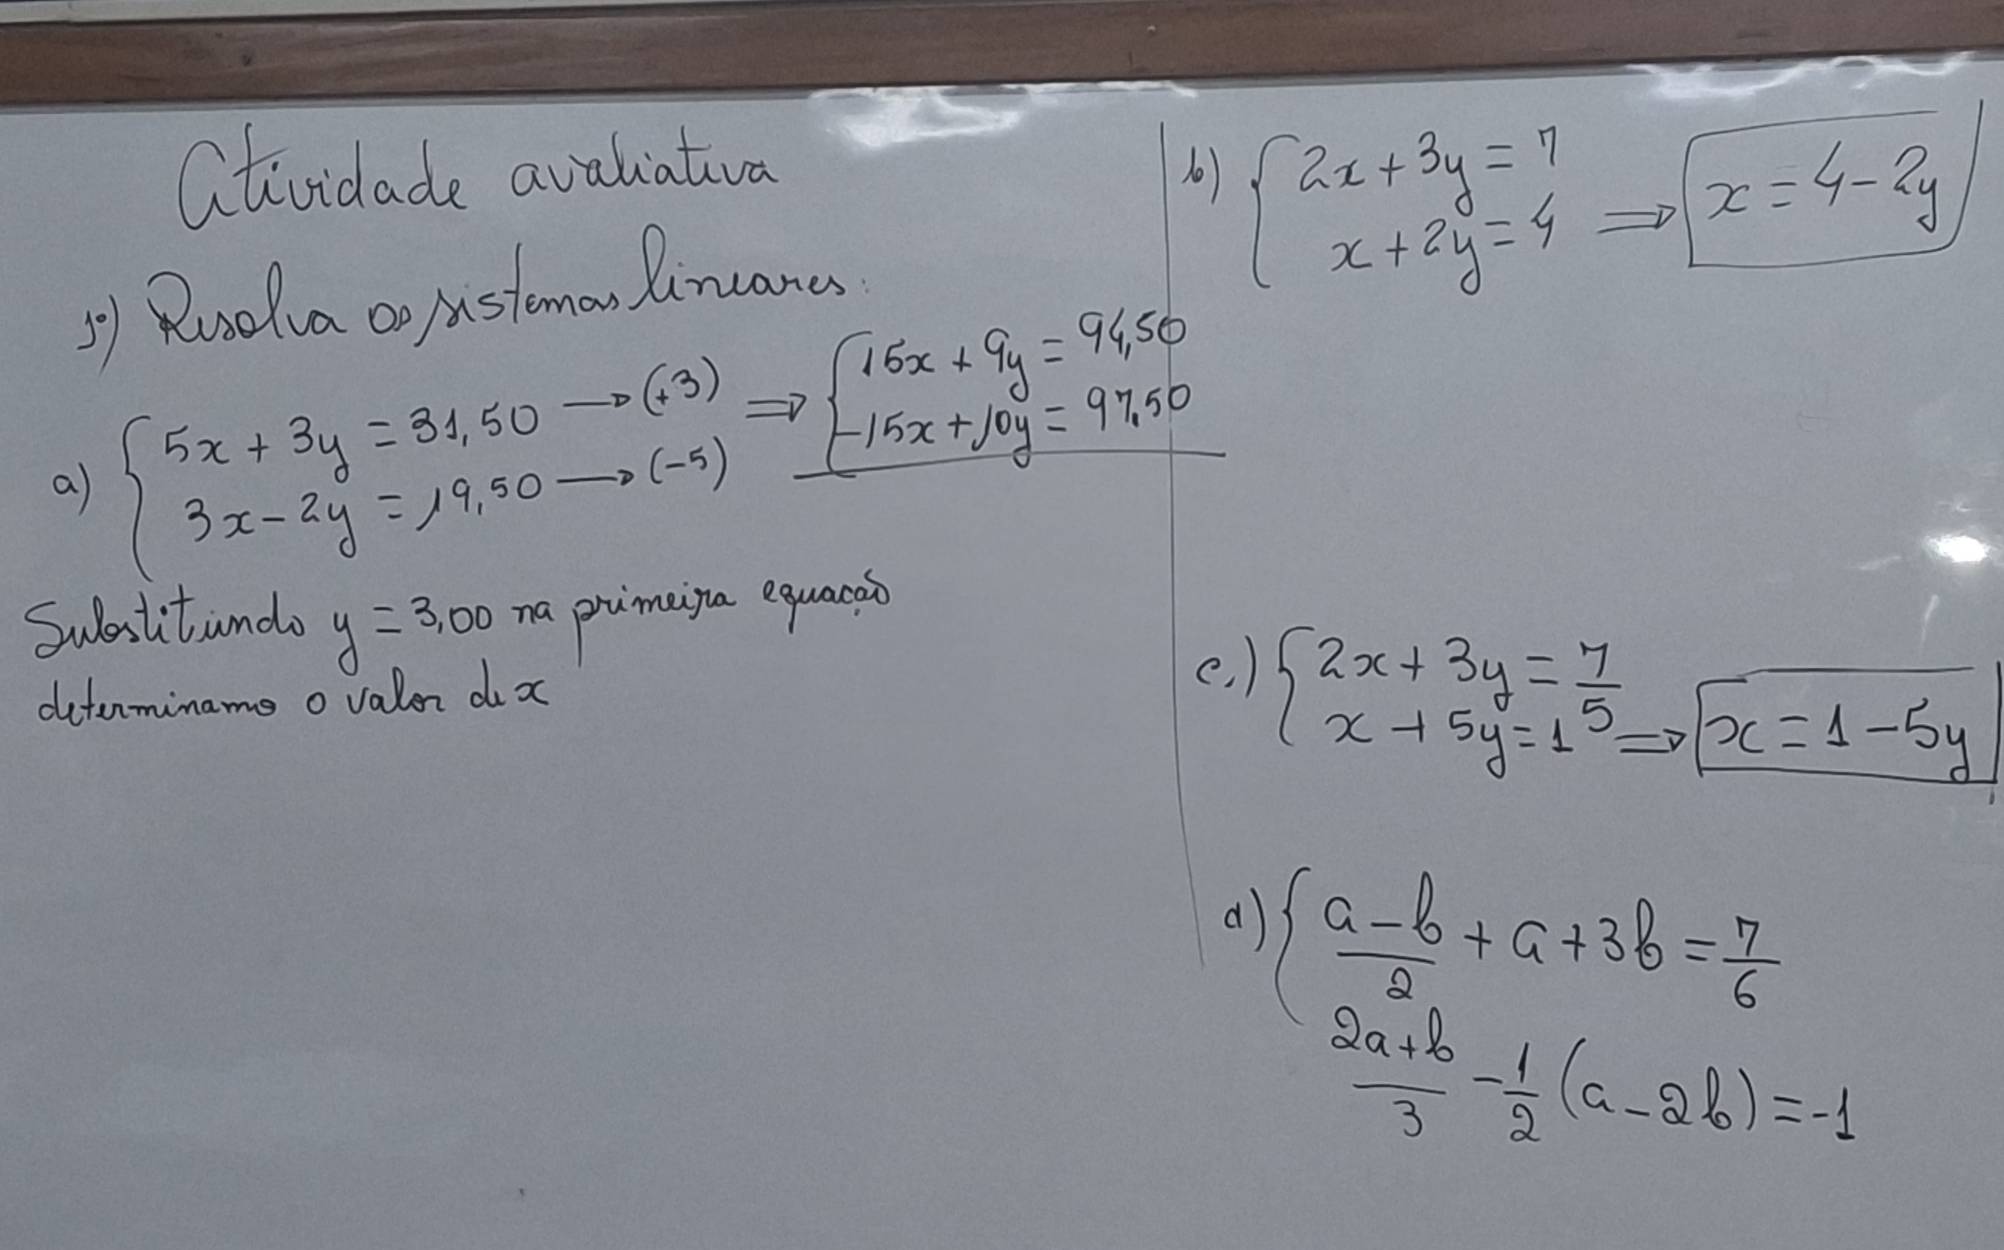 Atividade avaliativa
1º) Resolva os sistemas lineares:
a) { 5x + 3y = 31,50 → (+3) ⇒ { 15x + 9y = 94,50
3x - 2y = 19,50 → (-5) -15x + 10y = 97,50
Substituindo y = 3,00 na primeira equação
determinamo o valor de x
b) { 2x + 3y = 7
x + 2y = 4 ⇒ x = 4 - 2y
c.) { 2x + 3y = 7/5
x + 5y = 1 ⇒ x = 1 - 5y
d) { (a - b)/2 + a + 3b = 7/6
(2a + b)/3 - 1/2 (a - 2b) = -1